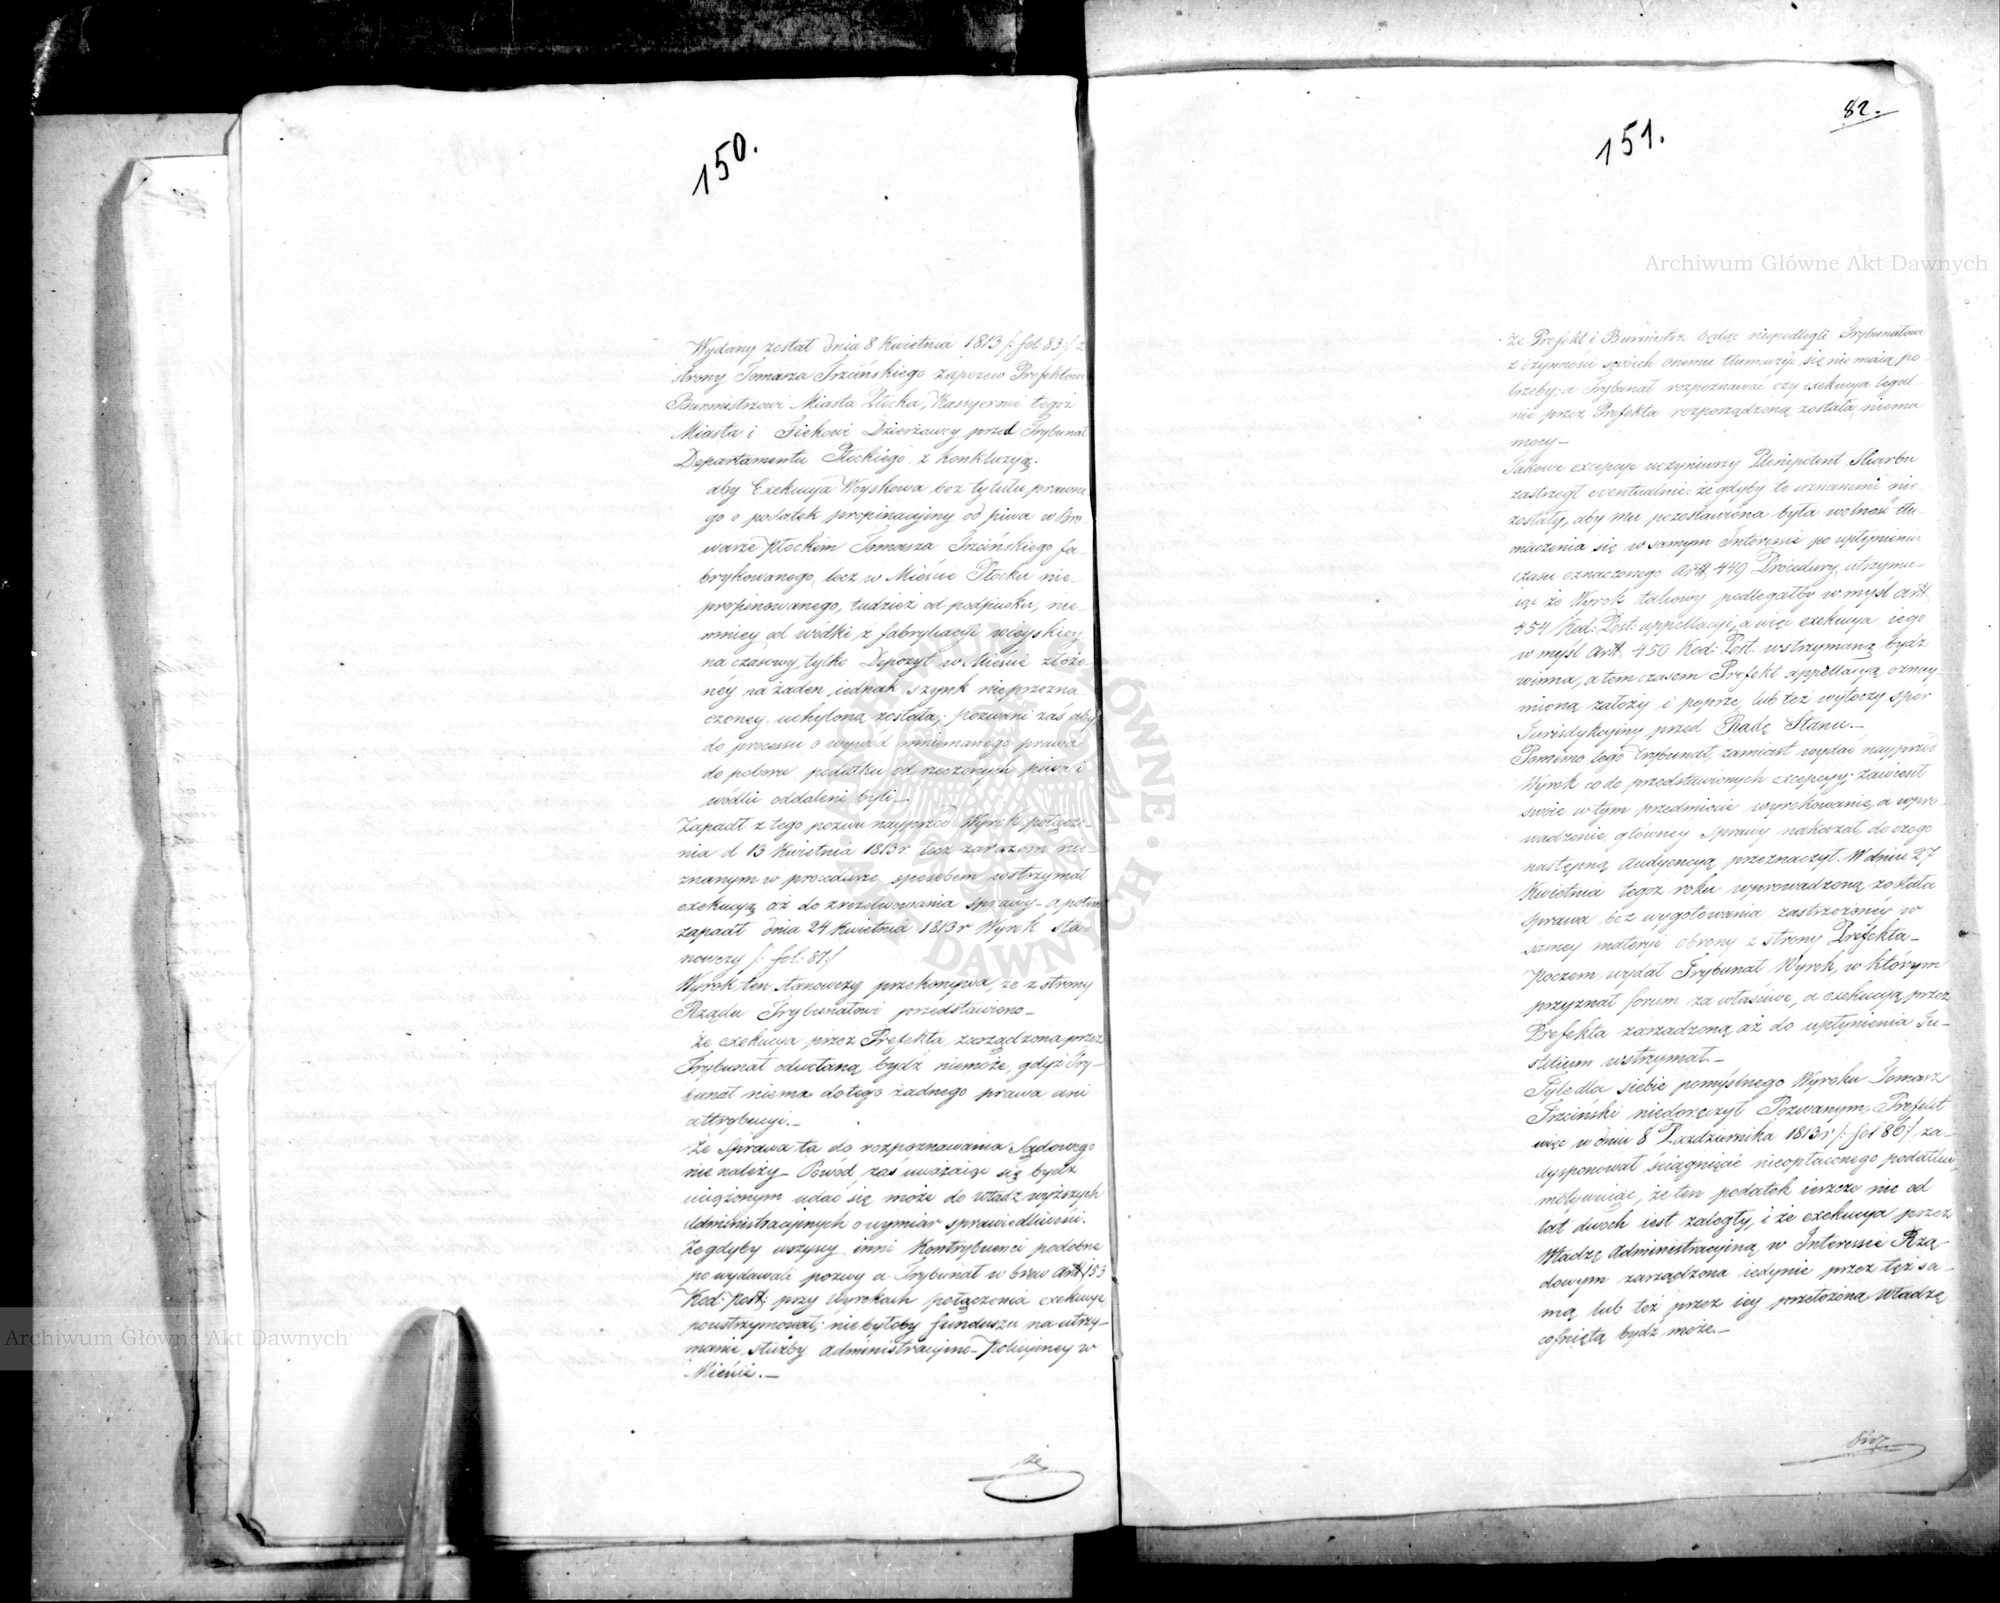 150.
Wydany został dnia 8 Kwietnia 1813 /: fol: 83 :/ z
strony Tomasza Trzcińskiego zapozew Prefektowi
Burmistrzowi Miasta Płocka, Kassyerowi tegoż
Miasta i Dzierżawcy przed Trybunał
Departamentu Płockiego z konkluzyą.
aby Exekucya Woyskowa bez tytułu prawne
go o podatek propinacyjny od piwa w Bro
warze Płockim Tomasza Trzcińskiego fa-
brykowanego, lecz w Mieście Płocku nie-
propinowanego, tudzież od podpiwku, nie-
mniey od wódki z fabrykacyi wieyskiey
na czasowy tylko Depozyt w Mieście złożo-
néy na żaden iednak szynk nieprzezna
czoney uchyloną została; pozwani zaś aby
do processu o wywód mniemanego prawa
do poboru podatku od rzeczonych piwa i
wódki oddaleni byli_
Zapadł z tego pozwu nayprzód Wyrok połącze-
nia d 13 Kwietnia 1813 r lecz zarazem nie-
znanym w procedurze sposobem wstrzymał
exekucyą aż do zrezolwowania sprawy - a potem
zapadł dnia 24 Kwietnia 1813 r Wyrok sta-
nowczy /: fol: 87 :/
Wyrok ten stanowczy przekonywa, że z strony
Rządu Trybunałowi przedstawiono_
że exekucya przez Prefekta zarządzona przez
Trybunał odwołaną bydź niemoże, gdyż Try-
bunał niema do tego żadnego prawa ani
attrybucyi._
Że sprawa ta do rozpoznawania Sądowego
nie należy_ Powód zaś uważaiąc się bydź
uciążonym udać się może do władz wyższych
Administracyjnych o wymiar sprawiedliwości.
Że gdyby wszyscy inni Kontrybuenci podobne
powydawali pozwy a Trybunał w brew Artt 153
Kod: Post; przy wyrokach połączenia exekucye
powstrzymował; niebyłoby funduszu na utrzy-
manie służby administracyjno-Policyjney w
Mieście._
że
151.
82.
Że Prefekt i Burmistrz będąc niepodlegli Trybunałowi
z czynności swoich onemu tłumaczyć się nie maią po-
trzeby; a Trybunał rozpoznawać czy exekucya legal-
nie przez Prefekta rozporządzoną została niema
mocy_
Takowe excepcye uczyniwszy Plenipotent Skarbu
zastrzegł eventualnie: że gdyby te uznanemi nie-
zostały, aby mu pozostawioną była wolność tłu-
maczenia się w samym Interessie po upłynieniu
czasu oznaczonego Artt 449 Procedury, utrzymu-
iąc że Wyrok takowy podlegałby w myśl artt
454 Kod: Post: appellacyi, a więc exekucya iego
w myśl Artt 450 Kod: Post: wstrzymaną bydź
winna, a tem czasem Prefekt appellacyą oznay-
mioną założy i poprze, lub też wytoczy spór
Jurisdykcyjny przed Radę Stanu._
Pomimo tego Trybunał, zamiast wydać nayprzód
Wyrok co do przedstawionych excepcyy; zawiesił
swoie w tym przedmiocie wyrokowanie, a wpro-
wadzenie główney sprawy nakazał, do czego
następną Audyencyą przeznaczył. W dniu 27
Kwietnia tegoż roku wprowadzoną została
sprawa bez wygotowania zastrzeżonéy w
samey materyi obrony z strony Prefekta_
Poczem wydał Trybunał Wyrok, w którym
przyznał forum za właściwe, a exekucyą przez
Prefekta zarządzoną aż do upłynienia Ju-
stitium wstrzymał._
Tyle dla siebie pomyślnego Wyroku Tomasz
Trzciński niedoręczył Pozwanym; Prefekt
więc w dniu 8 Października 1813 r /: fol 86 :/ za-
dysponował ściągnięcie nieopłaconego podatku,
motywuiąc, że ten podatek ieszcze nie od
lat dwóch iest zaległy, i że exekucya przez
Władzę Administracyjną w Interessie Rzą-
dowym zarządzona iedynie przez tęż sa-
mą lub też przez iey przełożoną Władzę
cofniętą bydź może._